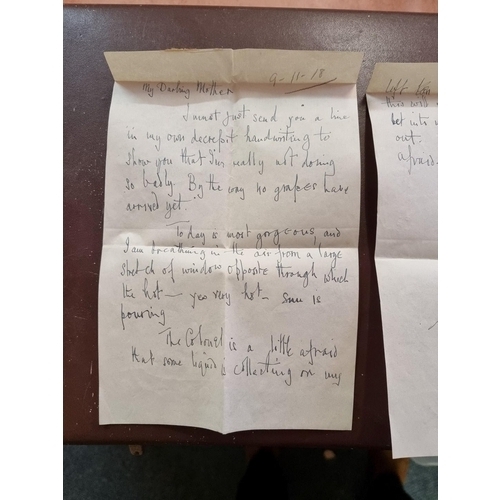 9-11-18
My Darling Mother
I must just send you a line
in my own decrepit handwriting to
show you that I'm really not doing
so badly. By the way no grapes have
arrived yet.
Today is most gorgeous and
I am breathing in the air from a large
stretch of window opposite through which
the hot – yes very hot – sun is
pouring
The Colonel is a little afraid
that some liquid is collecting on my
left
this
bet into
out.
afraid